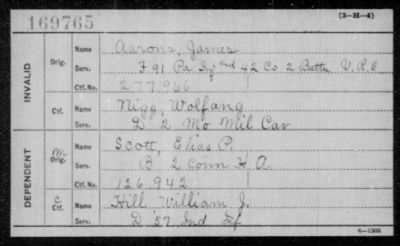 169765 (3-H-4)
INVALID
Orig. Name Aarons, James
Serv. F 91 Pa Inf and 42 Co 2 Battn V.R.C.
Ctf. No. 277966
Ctf. Name Nigg, Wolfang
Serv. D 2 Mo Mil Cav
DEPENDENT
M Orig. Name Scott, Elias P.
Serv. B 2 Conn H A.
Ctf. No. 126,942
C Ctf. Name Hill William J.
Serv. D 57 Ind Inf